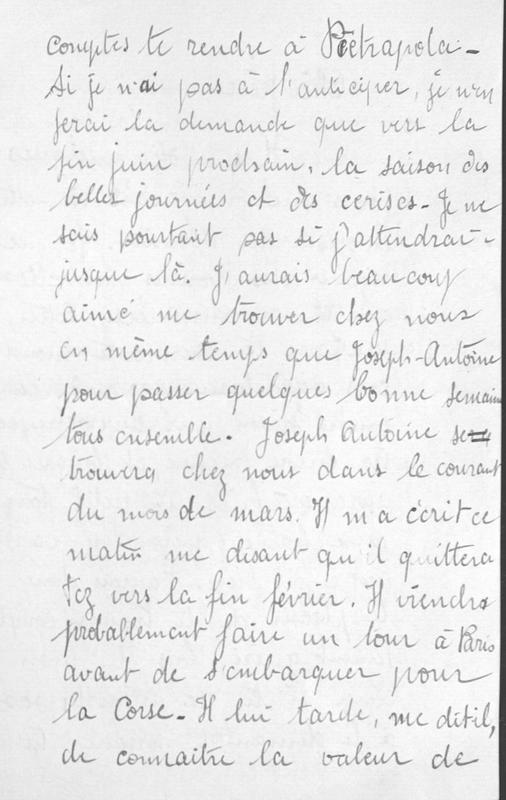 comptes te rendre à Pietrapola -
Si je n'ai pas à l'anticiper, je n'en
ferai la demande que vers la
fin juin prochain, la saison des
belles journées et des cerises - Je ne
sais pourtant pas si j'attendrai -
jusque là. J'aurais beaucoup
aimé me trouver chez nous
en même temps que Joseph-Antoine
pour passer quelques bonne semaine
tous ensemble. Joseph Antoine se
trouvera chez nous dans le courant
du mois de mars. Il m'a écrit ce
matin me disant qu'il quittera
Fez vers la fin février. Il viendra
probablement faire un tour à Paris
avant de s'embarquer pour
la Corse - Il lui tarde, me dit il,
de connaitre la valeur de